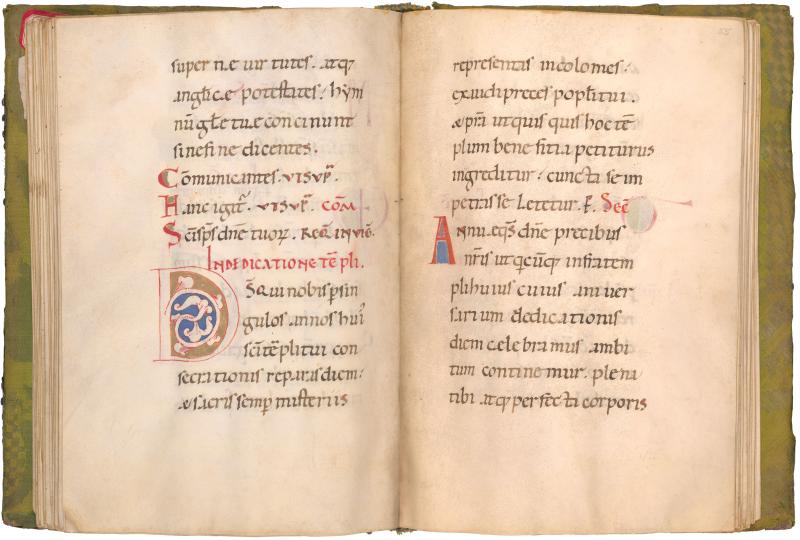 super ne uir tutes. atq;
angelice potestates. hym
nū glę tuę concinunt
sinefine dicentes.
Cōmunicantes. VTSVP̄.
Hanc igit̄. VTSVP̄. COM̄.
Sc̄ispsdn̄e tuoꝝ.
INDEDICATIONETĒPLI.
DS̄Qui nobispsin
gulos annos hui᾽
sc̄itēplitui con
secrationis reparasdiem.
&sacris semp misteriis
representas incolomes.
exaudipreces popl̄itui.
&pr̄a utquis quis hoctē
plum bene fitia petiturus
ingreditur. cuncta seim
petrasse letetur. P̄. Secr̄
Annue qs̄ dn̄e precibus
nr̄is utqcūq; infraтem
plihuius cuius anniuer
sarium dedicationis
diem celebramus ambi
tum contine mur. plena
tibi atq; perfecti corporis